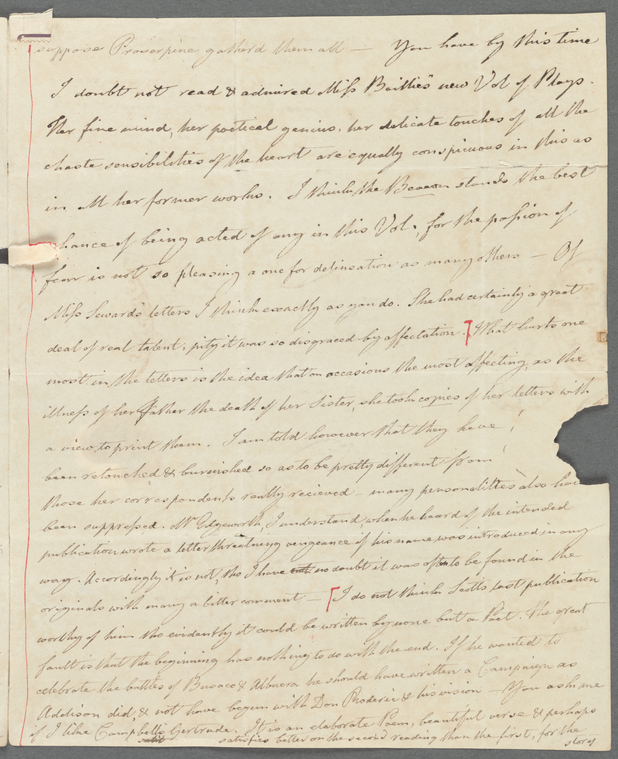 suppose Proserpine gatherd them all — You have by this time
I doubt not read & admired Miss Baillie's new Vol of Plays.
Her fine mind, her poetical genius, her delicate touches of all the
chaste sensibilities of the heart are equally conspicuous in this as
in all her former works. I think the Beacon stands the best
chance of being acted of any in this Vol, for the passion of
fear is not so pleasing a one for delineation as many others — Of
Miss Seward's letters I think exactly as you do. She had certainly a great
deal of real talent; pity it was so disgraced by affectation. What hurts one
most in the letters is the idea that on occasions the most affecting, as the
illness of her Father the death of her Sister, she took copies of her letters with
a view to print them. I am told however that they have
been retouched & burnished so as to be pretty different from
those her correspondents really recieved – many personalities also have
been suppressed. Mr Edgeworth, I understand, when he heard of the intended
publication wrote a letter threatning vengeance if his name was introduced in any
way. Accordingly it is not, tho I have no doubt it was often to be found in the
originals with many a bitter comment — I do not think Scotts last publication
worthy of him tho evidently it could be written by none but a Poet. The great
fault is that the beginning has nothing to do with the end. If he wanted to
celebrate the battles of Busaco & Albuera he should have written a Campaign as
Addison did, & not have begun with Don Roderic & his vision — You ask me
if I like Campbells Gertrude. It is an elaborate Poem, beautiful verse & perhaps
satisfies better on the second reading than the first, for the
story